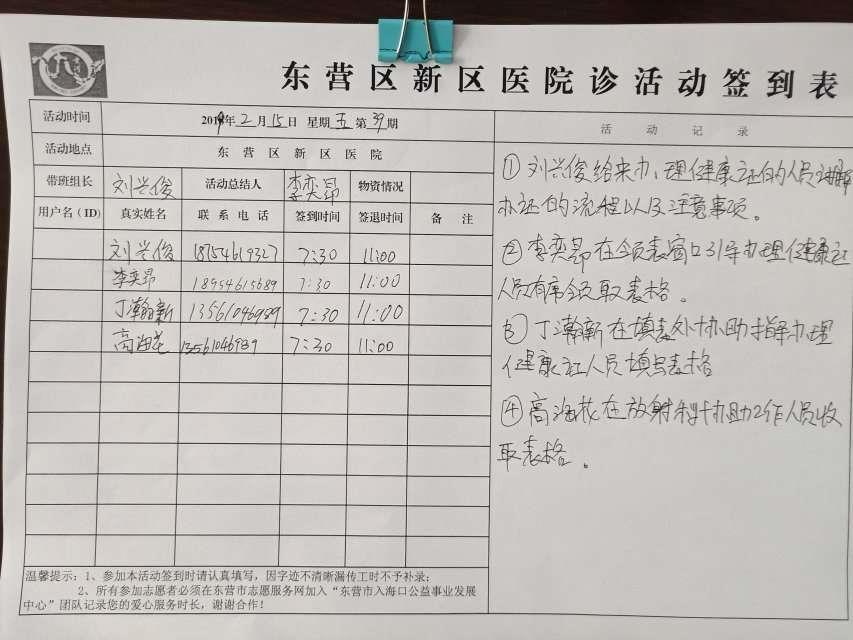 东营区新区医院诊活动签到表
活动时间 2019年2月15日 星期五 第39期 活动记录
活动地点 东营区新区医院
带班组长 刘兴俊 活动总结人 李奕昂 物资情况
用户名（ID） 真实姓名 联系电话 签到时间 签退时间 备注
刘兴俊 18754619327 7:30 11:00
李奕昂 18954615689 7:30 11:00
丁瀚新 13561046989 7:30 11:00
高海花 13561046989 7:30 11:00
①刘兴俊给来办理健康证的人员讲解
办证的流程以及注意事项。
②李奕昂在领表窗口引导办理健康证
人员有序领取表格。
③丁瀚新在填表处协助指导办理
健康证人员填写表格
④高海花在放射科协助工作人员收
取表格。
温馨提示：1、参加本活动签到时请认真填写，因字迹不清晰漏传工时不予补录；
2、所有参加志愿者必须在东营市志愿服务网加入“东营市入海口公益事业发展
中心”团队记录您的爱心服务时长，谢谢合作！